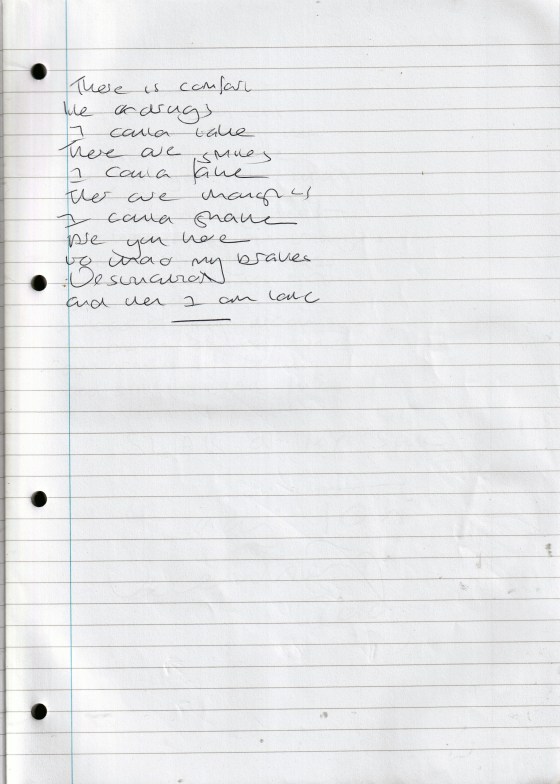 There is comfort
like drugs
I could take
There are smiles
I could fake
There are
I could shake
are you here
to my brakes
Destination
and then I am late